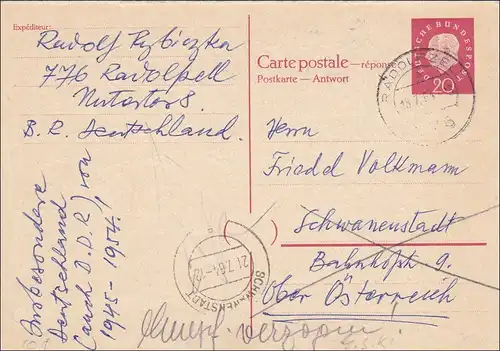 Expéditeur:
Radolf Rybiczka
776 Radolfzell
B. R. Deutschland.
Insbesondere
Deutschland
(auch D.D.R.) von
1945-1954!
Carte postale — réponse
Postkarte — Antwort
DEUTSCHE BUNDESPOST
20
RADOLFZELL
Herrn
Friedl Volkmann
Schwanenstadt
Bahnhofpl. 9.
Ober Österreich
SCHWANENSTADT
21.7.64-12
verzogen!